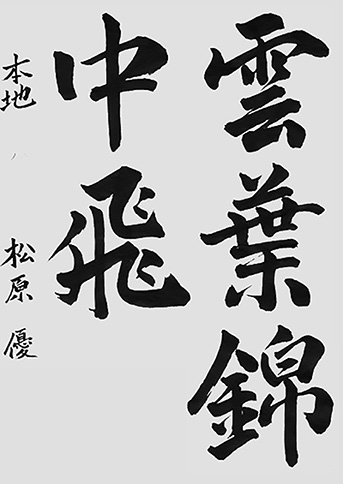 雲葉錦
中飛
本地 松原優